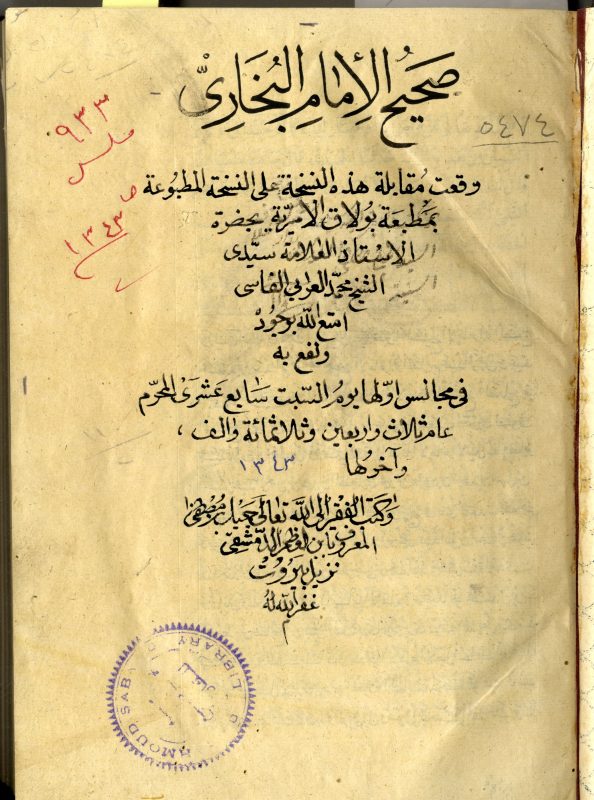 صحيح الإمام البخاري
٩٣٣
٥٤٧٤
١٣٤٣
وقعت مقابلة هذه النسخة على النسخة المطبوعة
بمطبعة بولاق الأميرية بحضرة
الاستاذ العلامة سيدى
الشيخ محمد العربي الفاسى
امتع الله بوجوده
ونفع به
فى مجالس اولها يوم السبت سابع عشرى المحرم
عام ثلاث واربعين وثلاثمائة والف،
وآخرها
١٣٤٣
وكتب الفقير الى الله تعالى جميل بن مصطفى
المعروف بابن العظم الدمشقي
نزيل بيروت
غفر الله له
م
MOUD SAB
LIBRARY